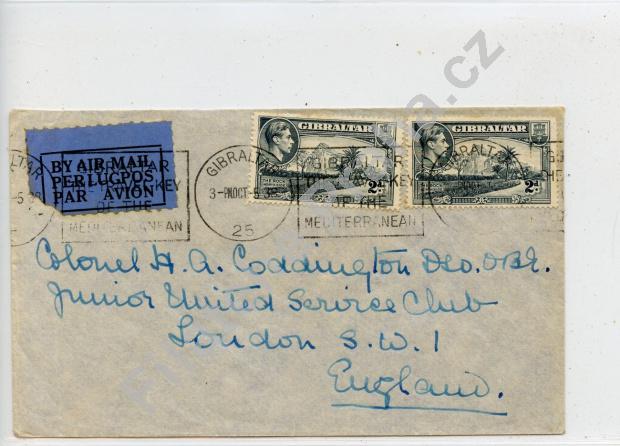 BY AIR MAIL
PER LUCPOS
PAR AVION
GIBRALTAR
3-PM OCT 5 38
25
GIBRALTAR
KEY
OF THE
MEDITERRANEAN
GIBRALTAR
THE ROCK
2d
GIBRALTAR
2d
MEDITERRANEAN
Colonel H. A. Coddington DSO. OBE.
Junior United Service Club
London S.W.1
England.